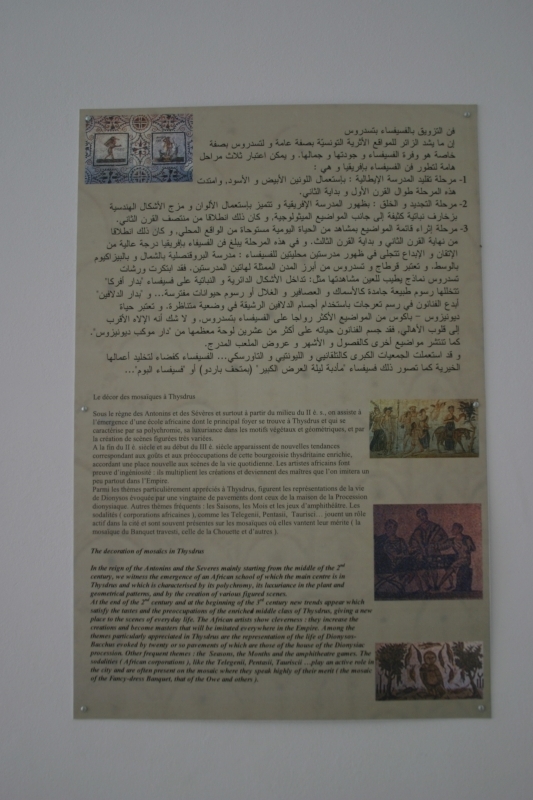 فن التزويق بالفسيفساء بتسدروس
إن ما يشد الزائر للمواقع الأثرية التونسيّة بصفة عامة و لتسدروس بصفة
خاصة هو وفرة الفسيفساء و جودتها و جمالها. و يمكن اعتبار ثلاث مراحل
هامة لتطور فن الفسيفساء بإفريقيا و هي :
1- مرحلة تقليد المدرسة الإيطالية : بإستعمال اللونين الأبيض و الأسود. وامتدت
هذه المرحلة طوال القرن الأول و بداية الثاني.
2- مرحلة التجديد و الخلق : بظهور المدرسة الإفريقية و تتميز بإستعمال الألوان و مزج الأشكال الهندسية
بزخارف نباتية كثيفة إلى جانب المواضيع الميثولوجية. و كان ذلك انطلاقا من منتصف القرن الثاني.
3- مرحلة إثراء قائمة المواضيع بمشاهد من الحياة اليومية مستوحاة من الواقع المحلي. و كان ذلك انطلاقا
من نهاية القرن الثاني و بداية القرن الثالث. و في هذه المرحلة يبلغ فن الفسيفاء بإفريقيا درجة عالية من
الإتقان و الإبداع تتجلى في ظهور مدرستين محليتين للفسيفساء : مدرسة البروقنصلية بالشمال و بالبيزاكيوم
بالوسط. و تعتبر قرطاج و تسدروس من أبرز المدن الممثلة لهاتين المدرستين. فقد ابتكرت ورشات
تسدروس نماذج يطيب للعين مشاهدتها مثل: تداخل الأشكال الدائرية و النباتية على فسيفساء "بدار أفركا"
تتخللها رسوم طبيعة جامدة كالأسماك و العصافير و الغلال أو رسوم حيوانات مفترسة... و "بدار الدلافين"
أبدع الفنانون في رسم تعرجات باستخدام أجسام الدلافين الرشيقة في وضعية متناظرة. و تعتبر حياة
ديونيزوس - باكوس من المواضيع الأكثر رواجا على الفسيفساء بتسدروس. و لا شك أنه الإلاه الأقرب
إلى قلوب الأهالي. فقد جسم الفنانون حياته على أكثر من عشرين لوحة معظمها من "دار موكب ديونيزوس".
كما تنتشر مواضيع أخرى كالفصول و الأشهر و عروض الملعب المدرج.
و قد استعملت الجمعيات الكبرى كالتلقانيي و الليونتيي و التاورسكي... الفسيفساء كفضاء لتخليد أعمالها
الخيرية كما تصور ذلك فسيفساء "مأدبة ليلة العرض الكبير" (بمتحف باردو) أو "فسيفساء البوم"...
Le décor des mosaïques à Thysdrus
Sous le règne des Antonins et des Sévères et surtout à partir du milieu du II è. s., on assiste à
l'émergence d'une école africaine dont le principal foyer se trouve à Thysdrus et qui se
caractérise par sa polychromie, sa luxuriance dans les motifs végétaux et géométriques, et par
la création de scènes figurées très variées.
A la fin du II è. siècle et au début du III è. siècle apparaissent de nouvelles tendances
correspondant aux goûts et aux préoccupations de cette bourgeoisie thysdritaine enrichie,
accordant une place nouvelle aux scènes de la vie quotidienne. Les artistes africains font
preuve d'ingéniosité : ils multiplient les créations et deviennent des maîtres que l'on imitera un
peu partout dans l'Empire.
Parmi les thèmes particulièrement appréciés à Thysdrus, figurent les représentations de la vie
de Dionysos évoquée par une vingtaine de pavements dont ceux de la maison de la Procession
dionysiaque. Autres thèmes fréquents : les Saisons, les Mois et les jeux d'amphithéâtre. Les
sodalités ( corporations africaines ), comme les Telegenii, Pentasii, Taurisci... jouent un rôle
actif dans la cité et sont souvent présentes sur les mosaïques où elles vantent leur mérite ( la
mosaïque du Banquet travesti, celle de la Chouette et d'autres ).
The decoration of mosaics in Thysdrus
In the reign of the Antonins and the Severes mainly starting from the middle of the 2nd
century, we witness the emergence of an African school of which the main centre is in
Thysdrus and which is characterised by its polychromy, its luxuriance in the plant and
geometrical patterns, and by the creation of various figured scenes.
At the end of the 2nd century and at the beginning of the 3rd century new trends appear which
satisfy the tastes and the preoccupations of the enriched middle class of Thysdrus, giving a new
place to the scenes of everyday life. The African artists show cleverness : they increase the
creations and become masters that will be imitated everywhere in the Empire. Among the
themes particularly appreciated in Thysdrus are the representation of the life of Dionysos-
Bacchus evoked by twenty or so pavements of which are those of the house of the Dionysiac
procession. Other frequent themes : the Seasons, the Months and the amphitheatre games. The
sodalities ( African corporations ), like the Telegenii, Pentasii, Tauriscii ...play an active role in
the city and are often present on the mosaic where they speak highly of their merit ( the mosaic
of the Fancy-dress Banquet, that of the Owe and others ).